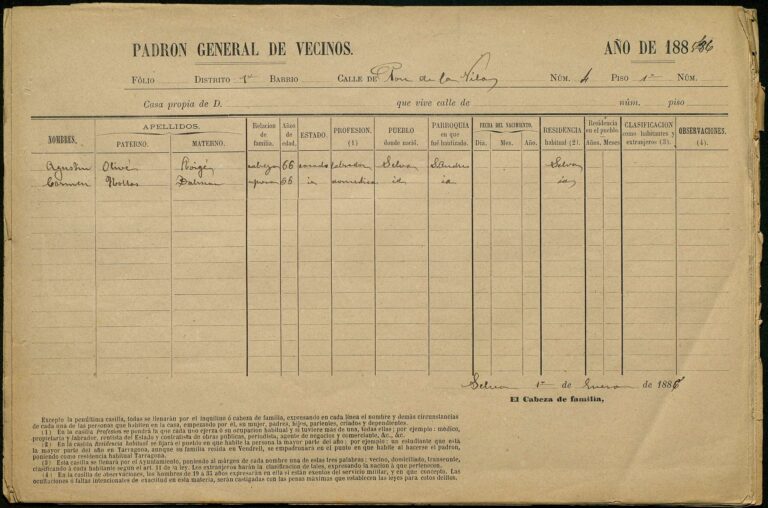 PADRON GENERAL DE VECINOS. AÑO DE 1886
FÓLIO DISTRITO 1º BARRIO CALLE DE de la NÚM. 4 PISO 1º NÚM.
Casa propia de D. que vive calle de núm. piso
NOMBRES. APELLIDOS. PATERNO. MATERNO. Relacion de familia. Años de edad. ESTADO. PROFESION. (1) PUEBLO donde nació. PARROQUIA en que fué bautizado. FECHA DEL NACIMIENTO. Dia. Mes. Año. RESIDENCIA habitual (2). Residencia en el pueblo. Años. Meses CLASIFICACION como habitantes y extranjeros (3). OBSERVACIONES. (4).
Agustin Olivé cabeza 66 casado labrador Selva S Andres Selva
Carmen esposa 66 id domestica id id id
Selva 1º de Enero de 1886
El Cabeza de familia,
Excepto la penúltima casilla, todas se llenarán por el inquilino ó cabeza de familia, expresando en cada línea el nombre y demás circunstancias
de cada una de las personas que habiten en la casa, empezando por él, su mujer, padres, hijos, parientes, criados y dependientes.
(1) En la casilla Profesion se pondrá la que cada uno ejerza ó su ocupacion habitual y si tuviere mas de una, todas ellas; por ejemplo: médico,
propietario y labrador, rentista del Estado y contratista de obras públicas, periodista, agente de negocios y comerciante, &c., &c.
(2) En la casilla Residencia habitual se fijará el pueblo en que habite la persona la mayor parte del año; por ejemplo: un estudiante que está
la mayor parte del año en Tarragona, aunque su familia resida en Vendrell, se empadronará en el punto en que habite al hacerse el padron,
poniendo como residencia habitual Tarragona.
(3) Esta casilla se llenará por el Ayuntamiento, poniendo al márgen de cada nombre una de estas tres palabras; vecino, domiciliado, transeunte,
clasificando á cada habitante segun el art. 11 de la ley. Los extranjeros harán la clasificacion de tales, expresando la nacion á que pertenecen.
(4) En la casilla de observaciones, los hombres de 19 á 35 años expresarán en ella si están exentos del servicio militar, y en que concepto. Las
ocultaciones ó faltas intencionales de exactitud en esta materia, serán castigadas con las penas máximas que establecen las leyes para estos delitos.